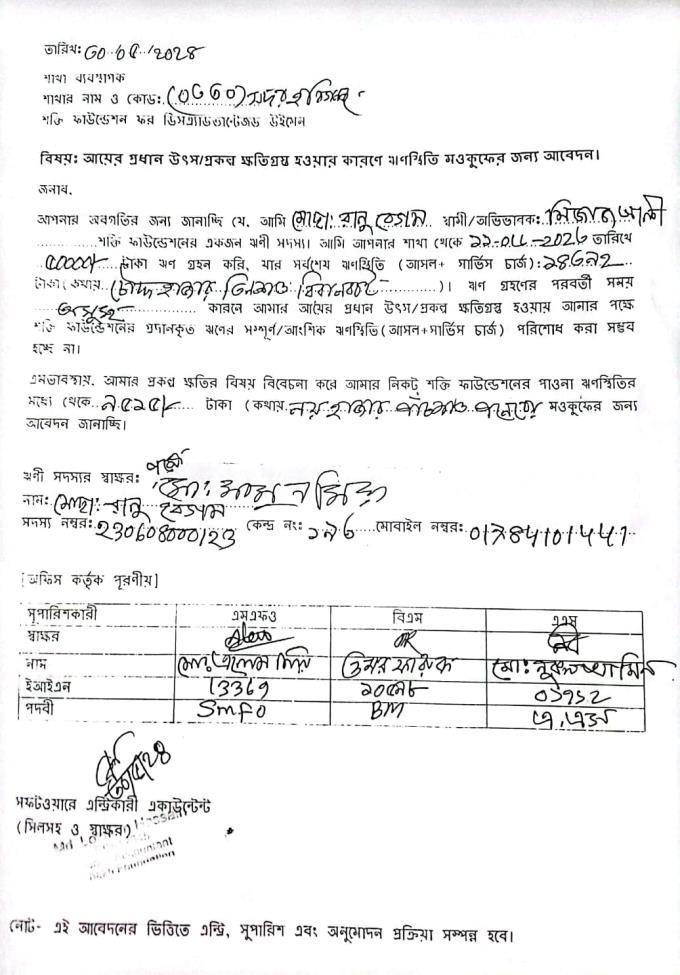 তারিখ:
শাখা ব্যবস্থাপক
শাখার নাম ও কোড: (0660) সদর হবিগঞ্জ
শক্তি ফাউন্ডেশন ফর ডিসএ্যাডভান্টেজড উইমেন
বিষয়: আয়ের প্রধান উৎস/প্রকল্প ক্ষতিগ্রস্থ হওয়ার কারণে ঋণস্থিতি মওকুফের জন্য আবেদন।
জনাব,
আপনার অবগতির জন্য জানাচ্ছি যে, আমি মোছা: রানু বেগম স্বামী/অভিভাবক: মিজান আলী
শক্তি ফাউন্ডেশনের একজন ঋনী সদস্য। আমি আপনার শাখা থেকে তারিখে
টাকা ঋণ গ্রহন করি, যার সর্বশেষ ঋণস্থিতি (আসল+ সার্ভিস চার্জ):
টাকা (কথায় চৌদ্দ হাজার তিনশত বিরানব্বই)। ঋণ গ্রহণের পরবর্তী সময়
অসুস্থ কারনে আমার আয়ের প্রধান উৎস/প্রকল্প ক্ষতিগ্রস্থ হওয়ায় আমার পক্ষে
শক্তি ফাউন্ডেশনের প্রদানকৃত ঋণের সম্পূর্ণ/আংশিক ঋণস্থিতি(আসল+সার্ভিস চার্জ) পরিশোধ করা সম্ভব
হচ্ছে না।
এমতাবস্থায়, আমার প্রকল্প ক্ষতির বিষয় বিবেচনা করে আমার নিকট শক্তি ফাউন্ডেশনের পাওনা ঋণস্থিতির
মধ্যে থেকে ৯৫১৫/- টাকা (কথায় নয় হাজার পাঁচশত পনেরো মওকুফের জন্য
আবেদন জানাচ্ছি।
ঋণী সদস্যর স্বাক্ষর: পক্ষে মো: মামুন মিয়া
নাম: মোছা: রানু বেগম
সদস্য নম্বর: 230608000123 কেন্দ্র নং: ১৭৬ মোবাইল নম্বর: 01784101441
[অফিস কর্তৃক পূরণীয়]
সুপারিশকারী এমএফও বিএম এএম
স্বাক্ষর
নাম মিয়া উমর ফারুক মো: নুরুল আমিন
ইআইএন 13369
পদবী SMFO BM এ,এম
সফটওয়ারে এন্ট্রিকারী একাউন্টেন্ট
(সিলসহ ও স্বাক্ষর)
নোট- এই আবেদনের ভিত্তিতে এন্ট্রি, সুপারিশ এবং অনুমোদন প্রক্রিয়া সম্পন্ন হবে।